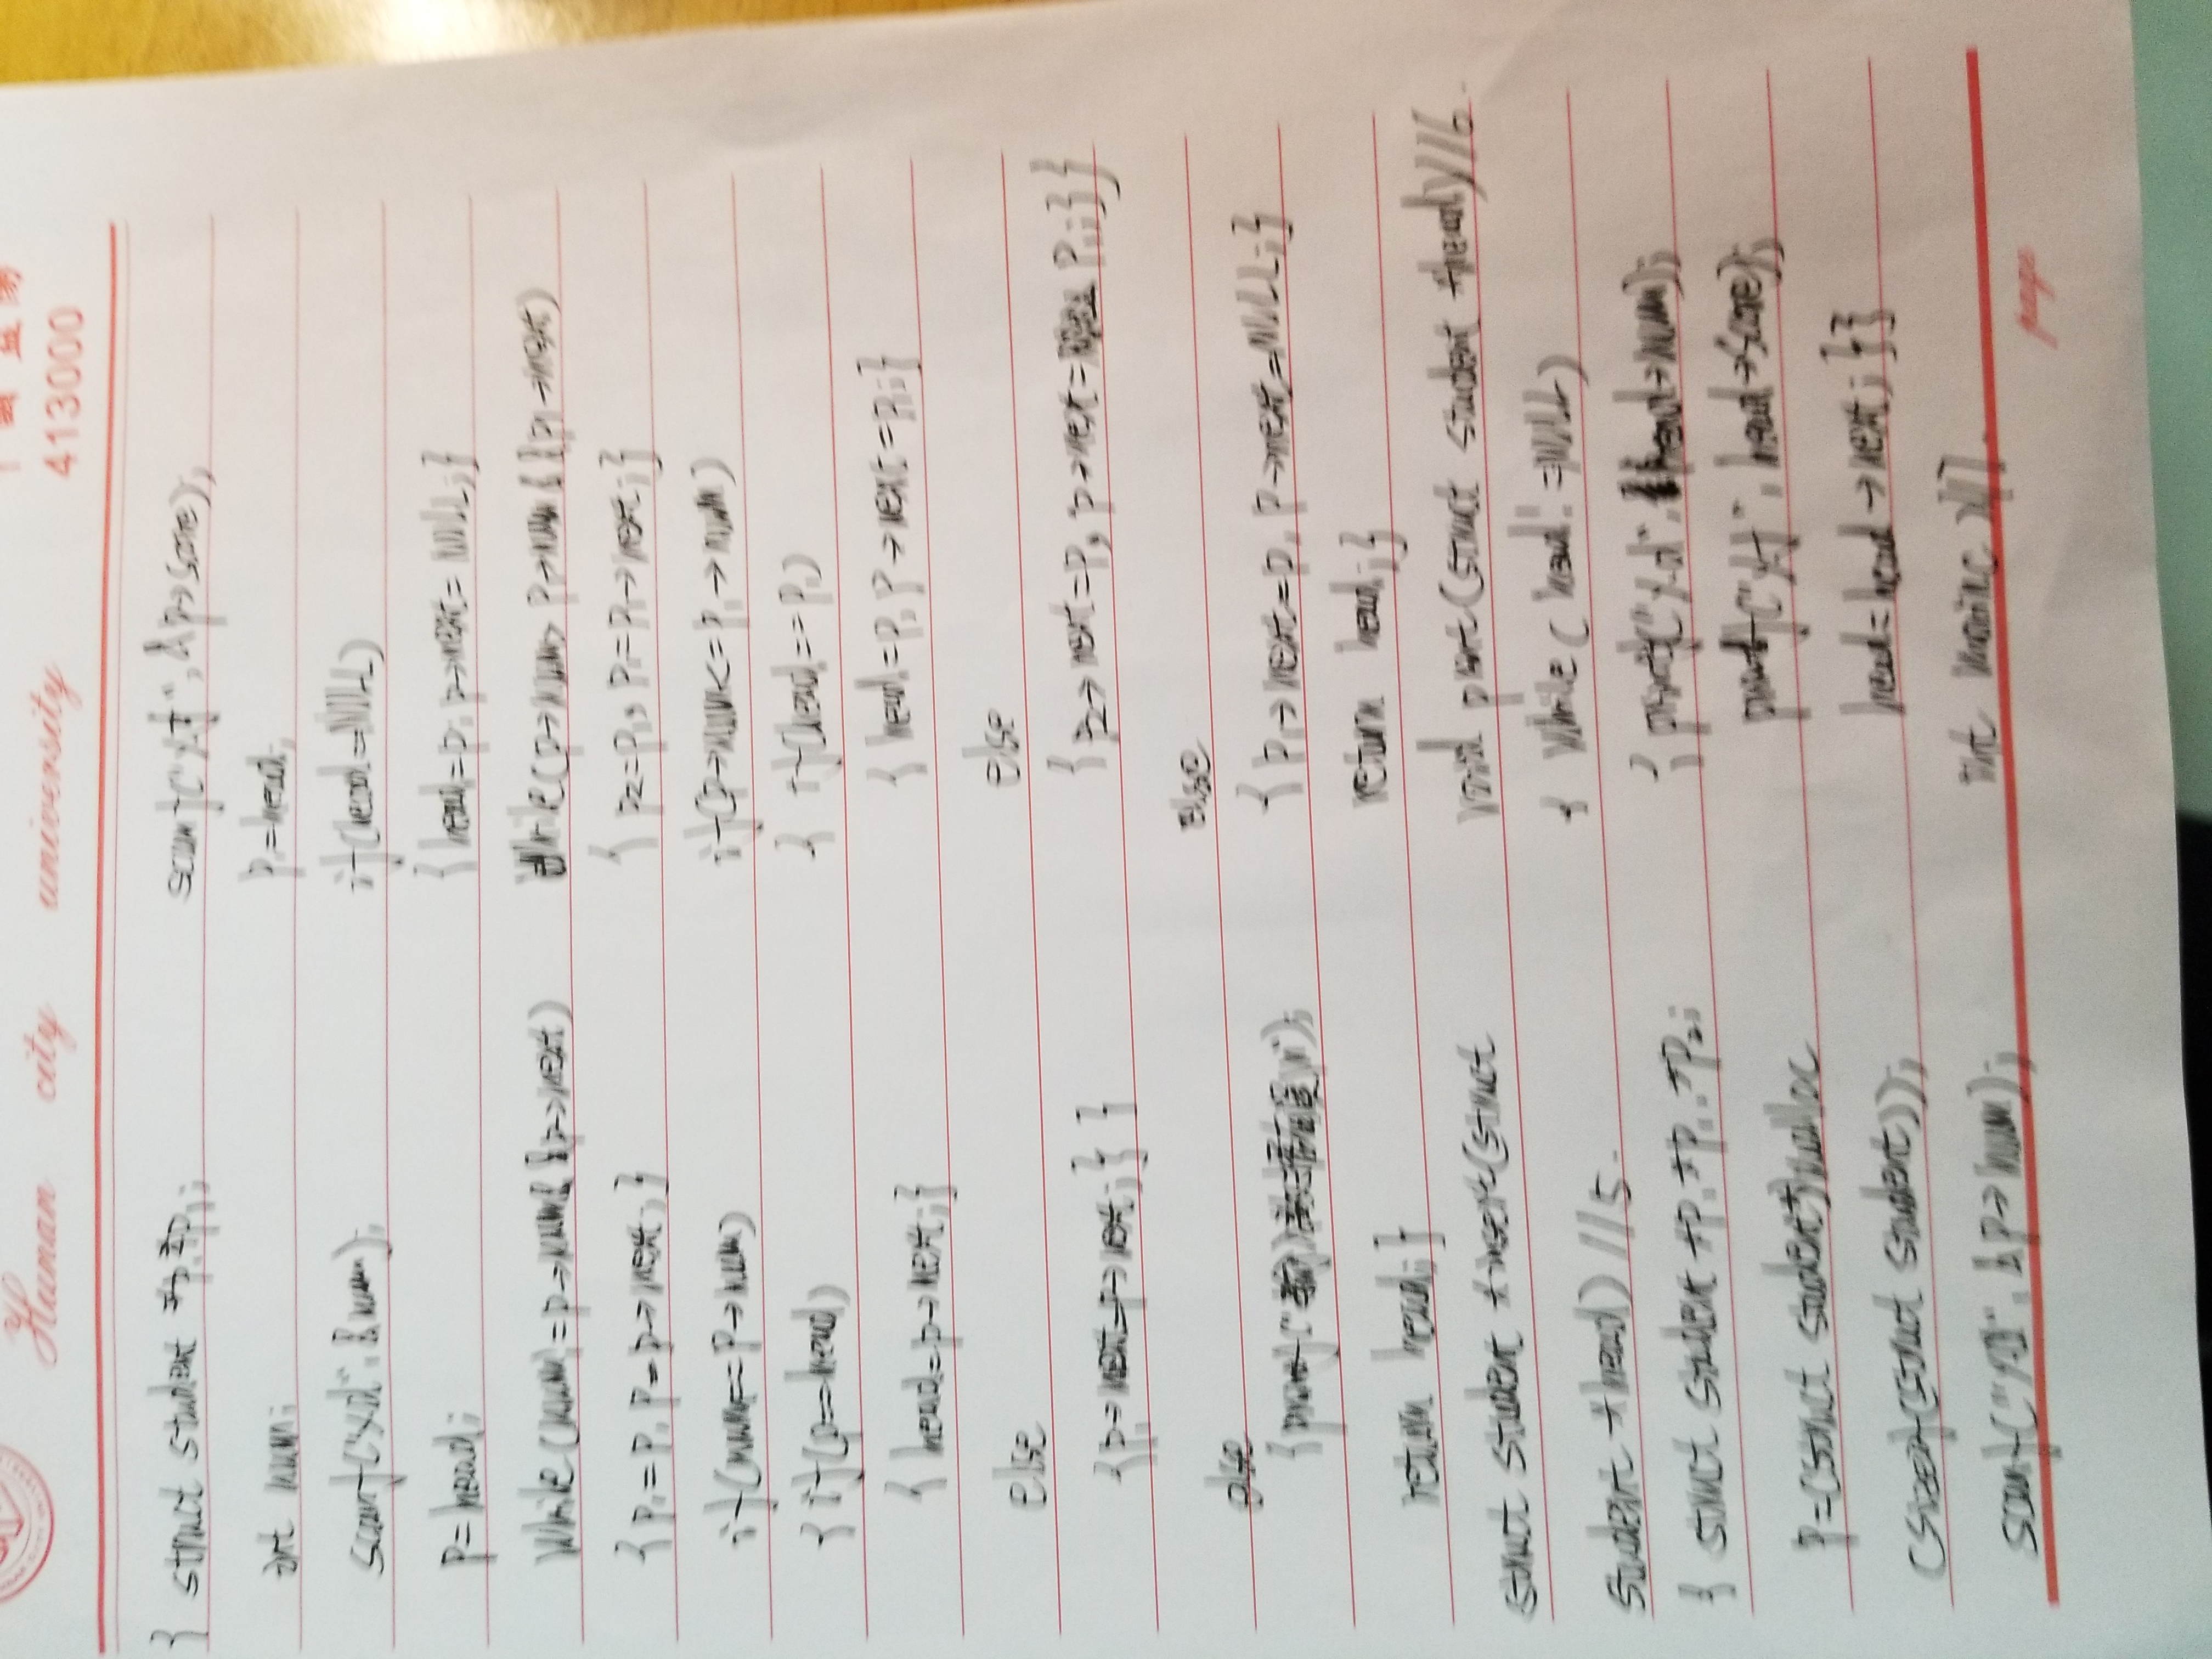 Hunan city university
413000
{ struct student *p,*p1;
int num;
scanf("%d",&num);
p=head;
while(num!=p->num&&p->next)
{p1=p,p=p->next;}
if(num==p->num)
{if(p==head)
{head=p->next;}
else
{p1->next=p->next;} }
else
{printf(" \n");
return head;}
struct student *insert(struct
student *head) //5.
{ struct student *p,*p1,*p2;
p=(struct student*)malloc
(sizeof(struct student));
scanf("%d",&p->num);
scanf("%f",&p->score);
p1=head;
if(head==NULL)
{head=p; p->next=NULL;}
while(p->num>p1->num&&p1->next)
{p2=p1,p1=p1->next;}
if(p->num<=p1->num)
{ if(head==p1)
{head=p,p->next=p1;}
else
{p2->next=p,p->next= p1;}}
else
{p1->next=p,p->next=NULL;}
return head;}
void print(struct student *head)//6.
{ while(head!=NULL)
{printf("%d", head->num);
printf("%f",head->score);
head=head->next;}}
int main( )//7.
page